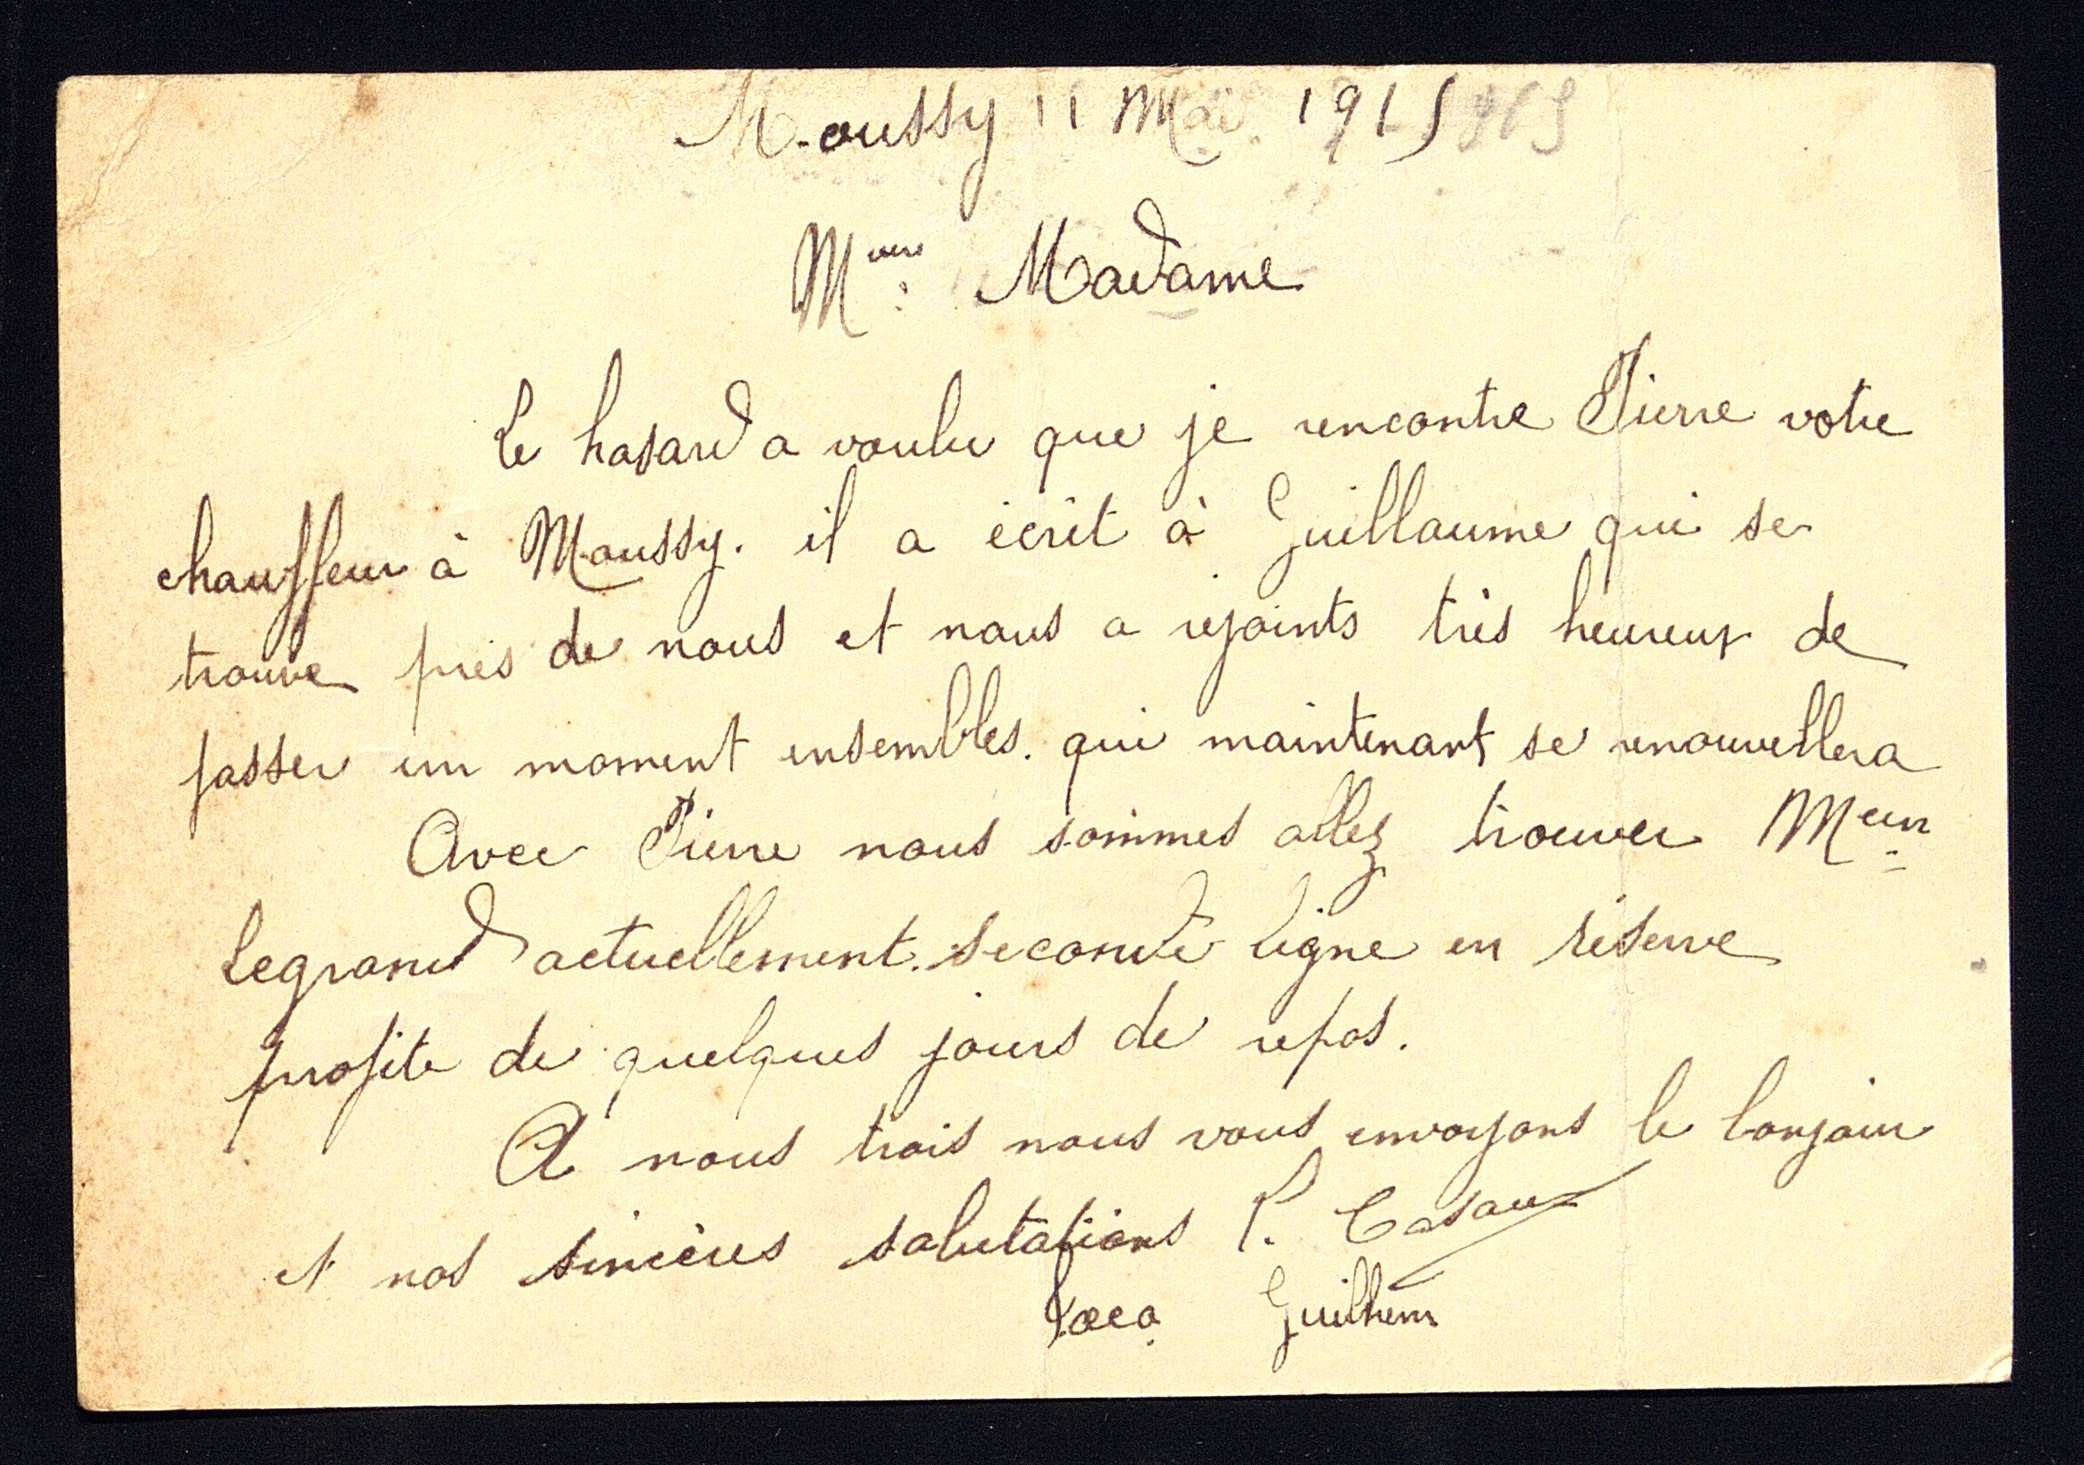 Moussy 11 Mai 1915
Meur Madame
Le hasard a voulu que je rencontre Pierre votre
chauffeur à Moussy. il a écrit à Guillaume qui se
trouve près de nous et nous a rejoints très heureux de
passer un moment ensembles. qui maintenant se renouvellera
Avec Pierre nous sommes allez trouver Meur
Legrand actuellement. seconde ligne en réserve
profite de quelques jours de repos.
A nous trois nous vous envoyons le bonjour
et nos sincères salutations P. Casaux
Guilhem